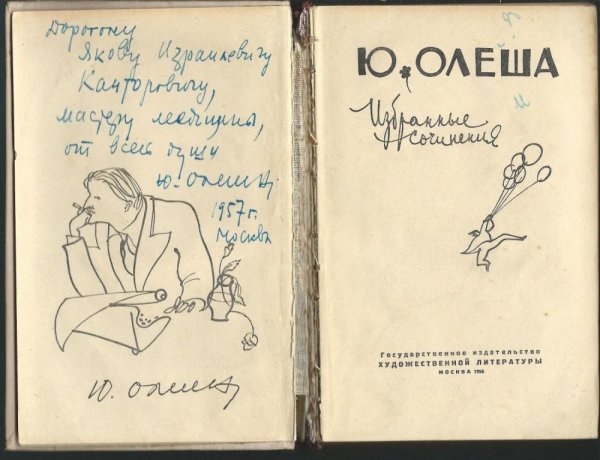 Дорогому
Якову Израилевичу
Канторовичу,
мастеру медицины,
от всей души
Ю. Олеша
1957 г.
Москва
Ю. Олеша
Ю. ОЛЕША
Избранные
сочинения
Государственное издательство
ХУДОЖЕСТВЕННОЙ ЛИТЕРАТУРЫ
МОСКВА 1956